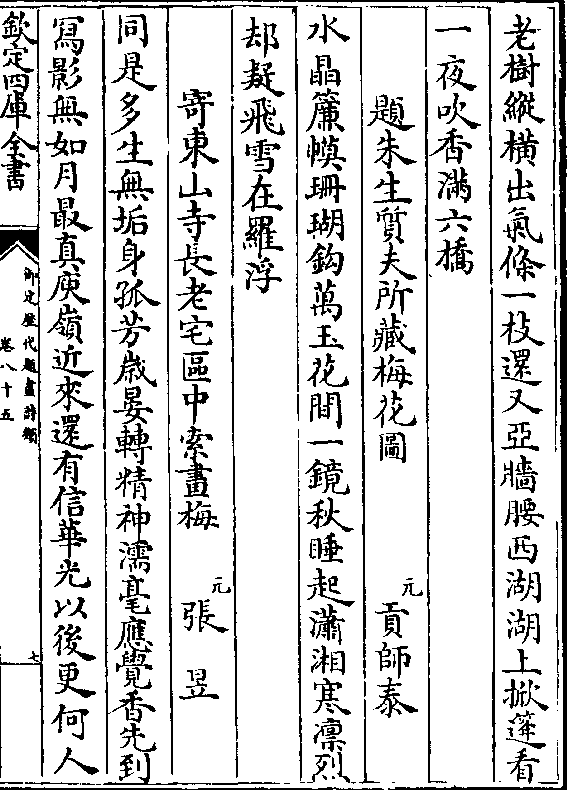 老樹縱橫出氣條一枝還又亞牆腰西湖湖上掀篷看
一夜吹香滿六橋
題朱生質夫所藏梅花圖 元 貢師泰
水晶簾幙珊瑚鈎萬玉花間一鏡秋睡起瀟湘寒凛烈
却疑飛雪在羅浮
寄東山寺長老宅區中索畫梅 元 張昱
同是多生無垢身孤芳嵗晏轉精神濡毫應覺香先到
冩影無如月最真庾嶺近來還有信華光以後更何人
欽定四庫全書 御定歷代題畫詩類 卷八十五 七